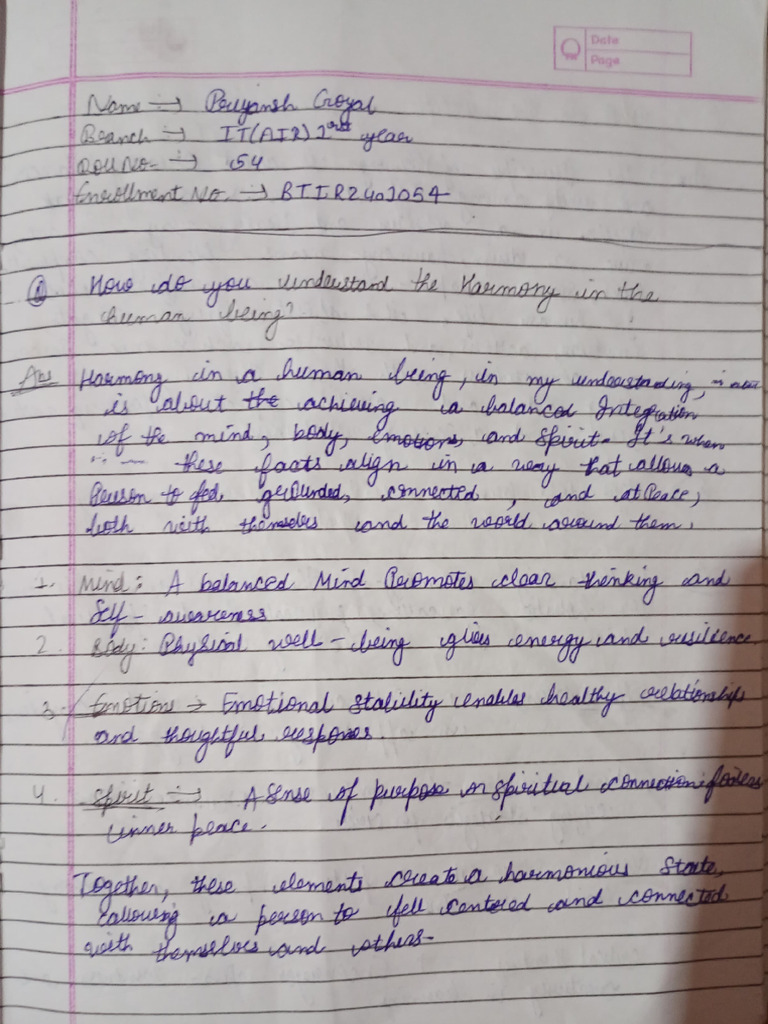 Date
Page
Name :→ Priyansh Goyal
Branch :→ IT(AIR) 1rst year
Roll No. :→ 54
Enrollment No. → BTIR24O1054
Q How do you understand the Harmony in the
human being?
Ans Harmony in a human being, in my understanding,
is about the achieving a balanced Integration
of the mind, body, emotions, and spirit. It's when
these facts align in a way that allows a
Person to fed, grounded, connected, and at Peace,
both with themselves and the world around them.
1. Mind: A balanced Mind Promotes clear thinking and
Self-awareness
2. Body: Physical well-being gives energy and resilience
3. Emotions → Emotional stability enables healthy relationships
and thoughtful responses.
4. Spirit :→ A Sense of purpose or spiritual connection fosters
inner peace.
Together, these elements create a harmonious State,
allowing a person to fell centered and connected
with themselves and others.